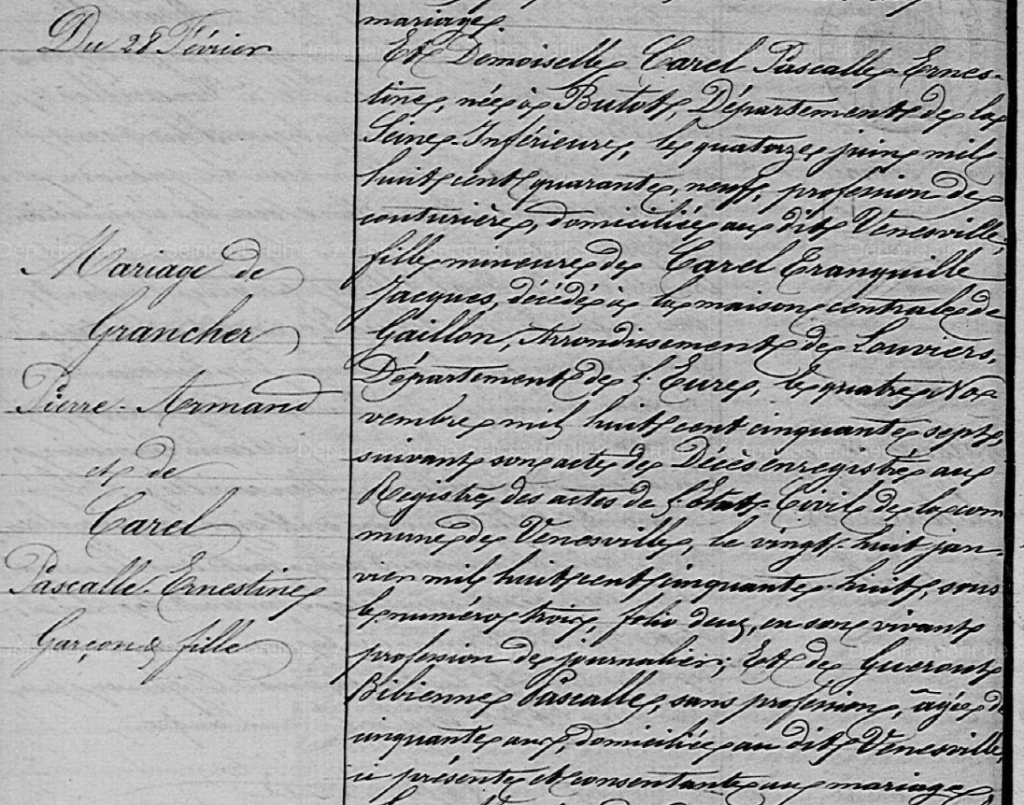 Du 28 Février
Mariage de
Grancher
Pierre-Armand
et de
Carel
Pascalle-Ernestine
Garçon & fille
mariage
Et Demoiselle Carel Pascalle Ernes-
tine, née à Butot, Département de la
Seine-Inférieure, le quatorze juin mil
huit cent quarante, neuf, profession de
couturière, domiciliée au dit Venesville,
fille mineure de Carel Tranquille
Jacques, décédé à la maison centrale de
Gaillon, Arrondissement de Louviers,
Département de l'Eure, le quatre No-
vembre mil huit cent cinquante sept,
suivant son acte de Décès enregistré au
Registre des actes de l'Etat-Civil de la com
mune de Venesville, le vingt-huit jan-
vier mil huit cent cinquante-huit, sous
le numéro trois, folio deux, en son vivant
profession de journalier; Et de Guerout
Bibienne Pascalle, sans profession, âgée de
cinquante ans, domiciliée au dit Venesville,
ci présente et consentante au mariage,